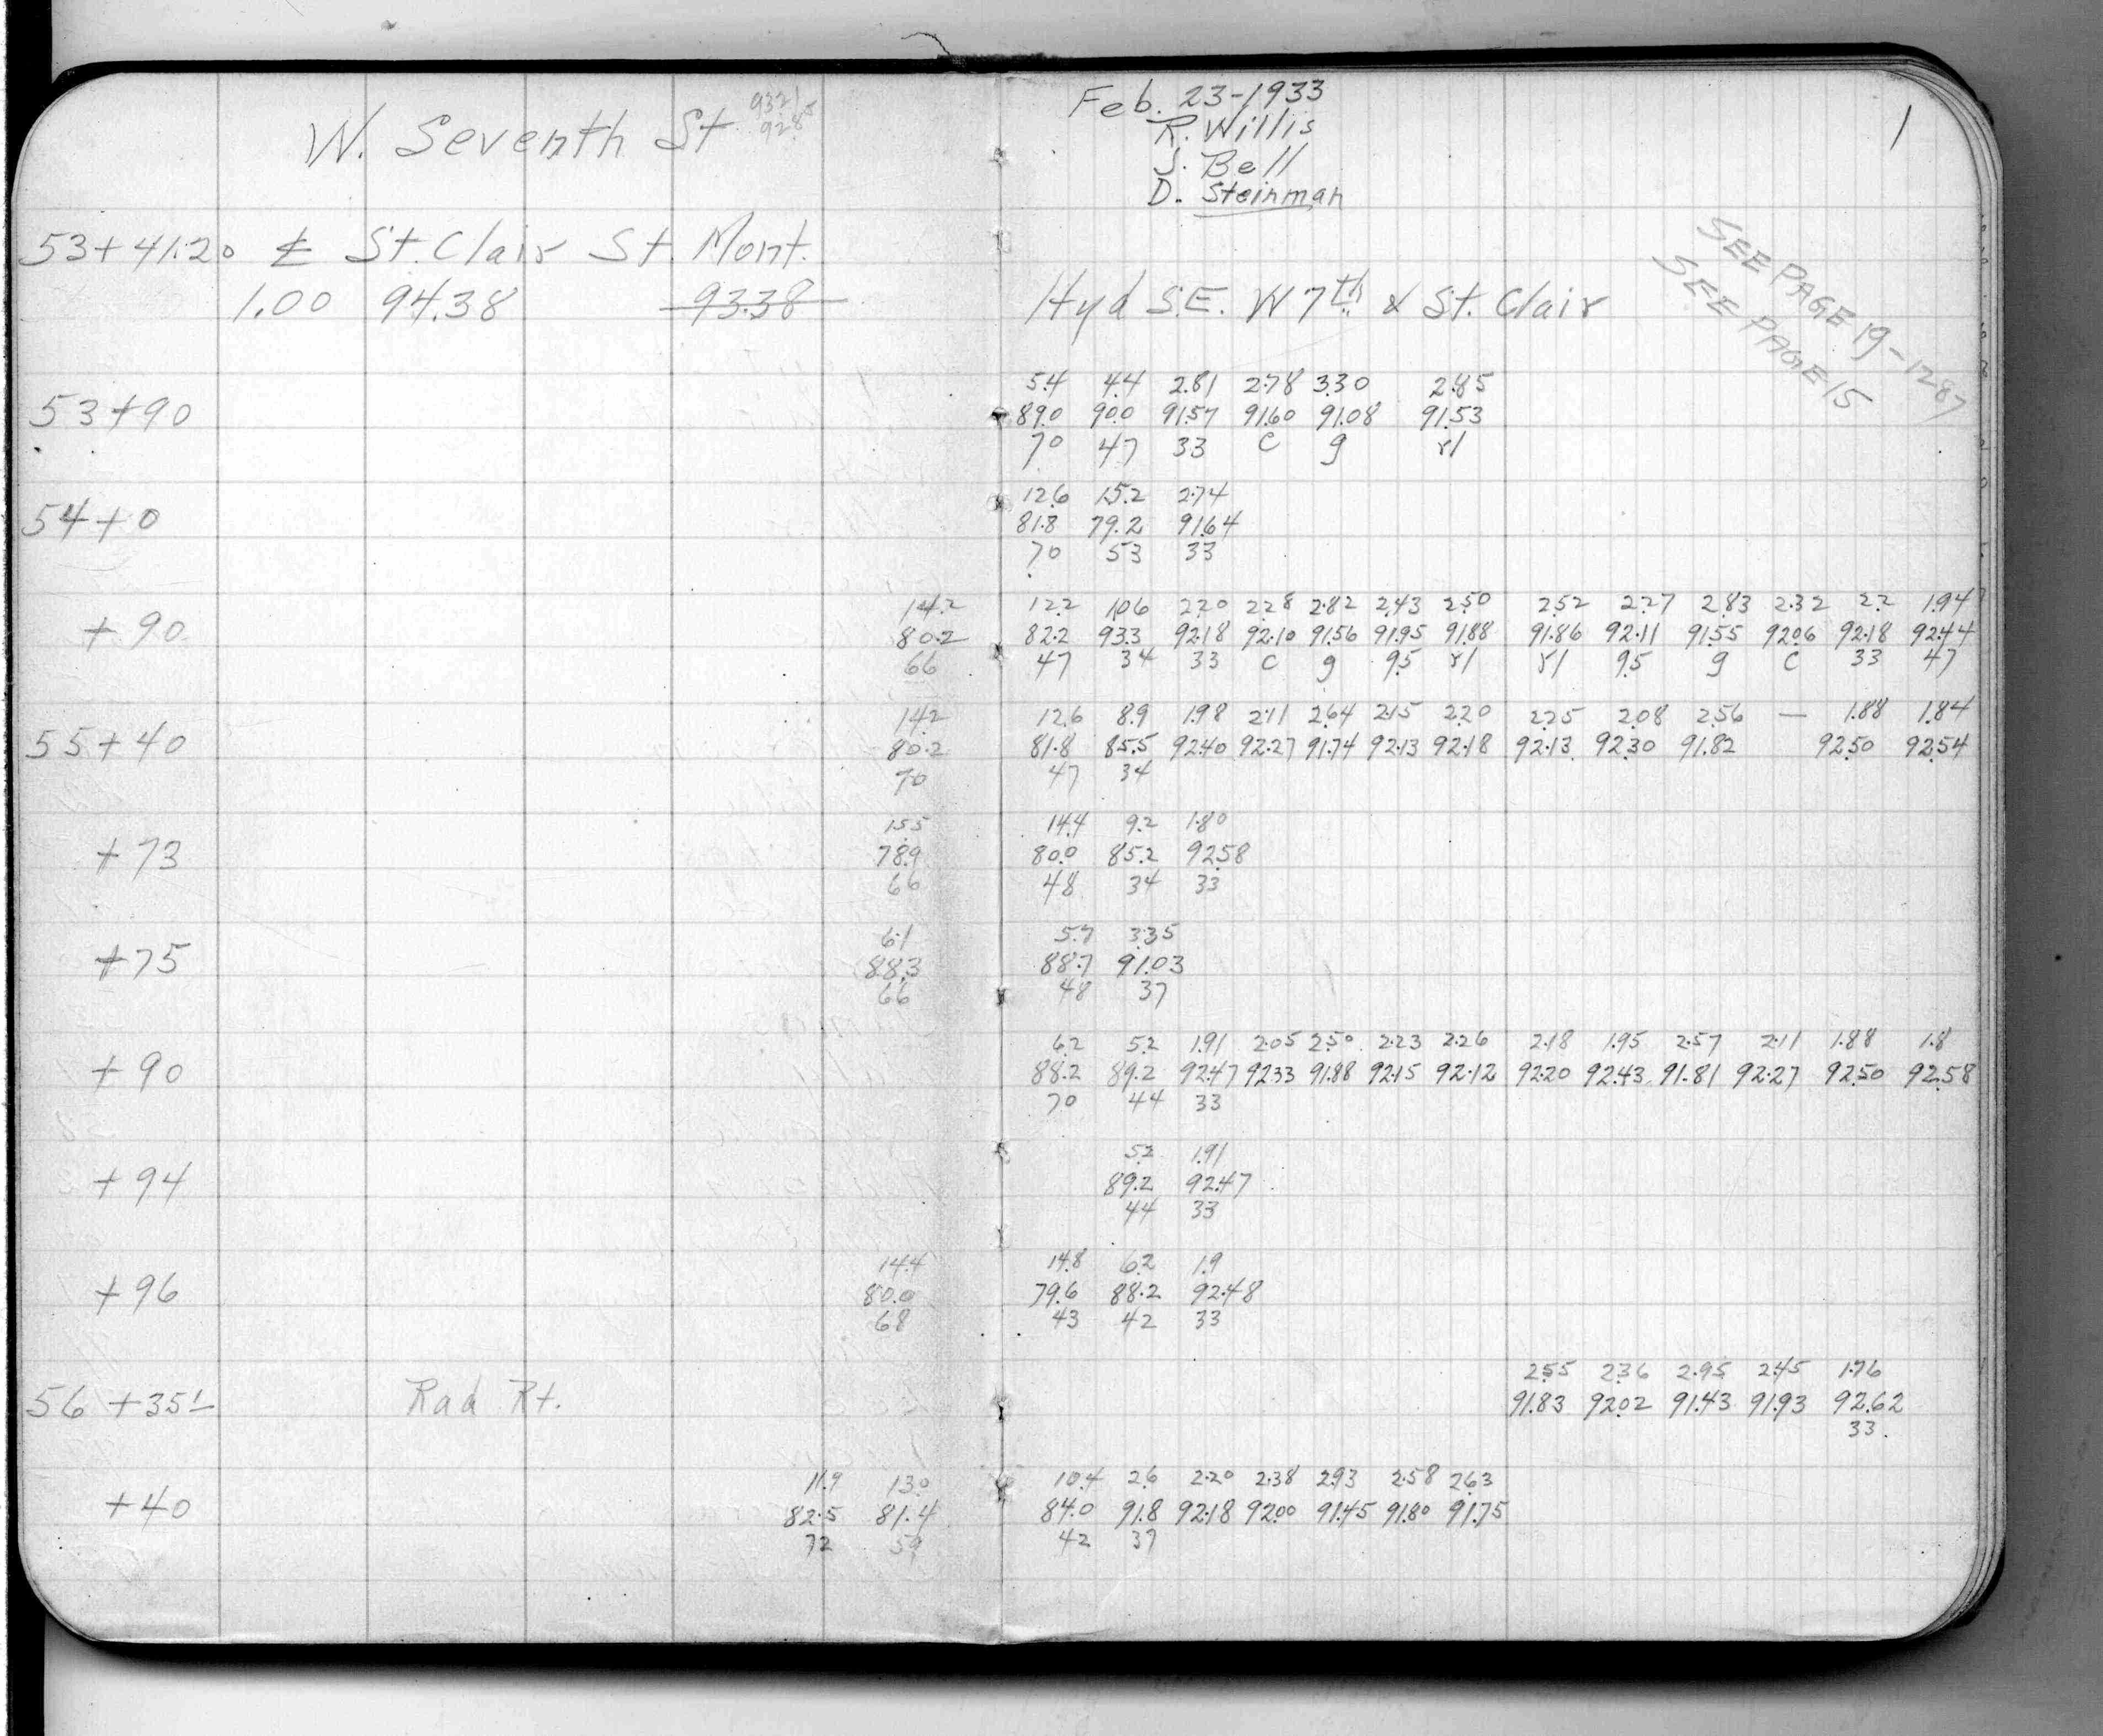 W. Seventh St
Feb. 23-1933
R. Willis
J. Bell
D. Steinman
1
53+41.20 ⅊ St. Clair St. Mont.
1.00 94.38 93.38
Hyd S.E. W 7th & St. Clair
SEE PAGE 19-1287
SEE PAGE 15
5.4 4.4 2.81 2.78 3.30 2.85
53+90 89.0 90.0 91.57 91.60 91.08 91.53
70 47 33 c g rl
12.6 15.2 2.74
54+0 81.8 79.2 91.64
70 53 33
14.2 12.2 10.6 2.20 2.28 2.82 2.43 2.50 2.52 2.27 2.83 2.32 2.2 1.94
+90 80.2 82.2 93.3 92.18 92.10 91.56 91.95 91.88 91.86 92.11 91.55 92.06 92.18 92.44
66 47 34 33 c g 9.5 rl rl 9.5 g c 33 47
14.2 12.6 8.9 1.98 2.11 2.64 2.15 2.20 2.25 2.08 2.56 — 1.88 1.84
55+40 80.2 81.8 85.5 92.40 92.27 91.74 92.13 92.18 92.13 92.30 91.82 92.50 92.54
70 47 34
15.5 14.4 9.2 1.80
+73 78.9 80.0 85.2 92.58
66 48 34 33
6.1 5.7 3.35
+75 88.3 88.7 91.03
66 48 37
6.2 5.2 1.91 2.05 2.50 2.23 2.26 2.18 1.95 2.57 2.11 1.88 1.8
+90 88.2 89.2 92.47 92.33 91.88 92.15 92.12 92.20 92.43 91.81 92.27 92.50 92.58
70 44 33
5.2 1.91
+94 89.2 92.47
44 33
14.4 14.8 6.2 1.9
+96 80.0 79.6 88.2 92.48
68 43 42 33
2.55 2.36 2.95 2.45 1.76
56+35± Rad Rt. 91.83 92.02 91.43 91.93 92.62
33
11.9 13.0 10.4 2.6 2.20 2.38 2.93 2.58 2.63
+40 82.5 81.4 84.0 91.8 92.18 92.00 91.45 91.80 91.75
72 59 42 37